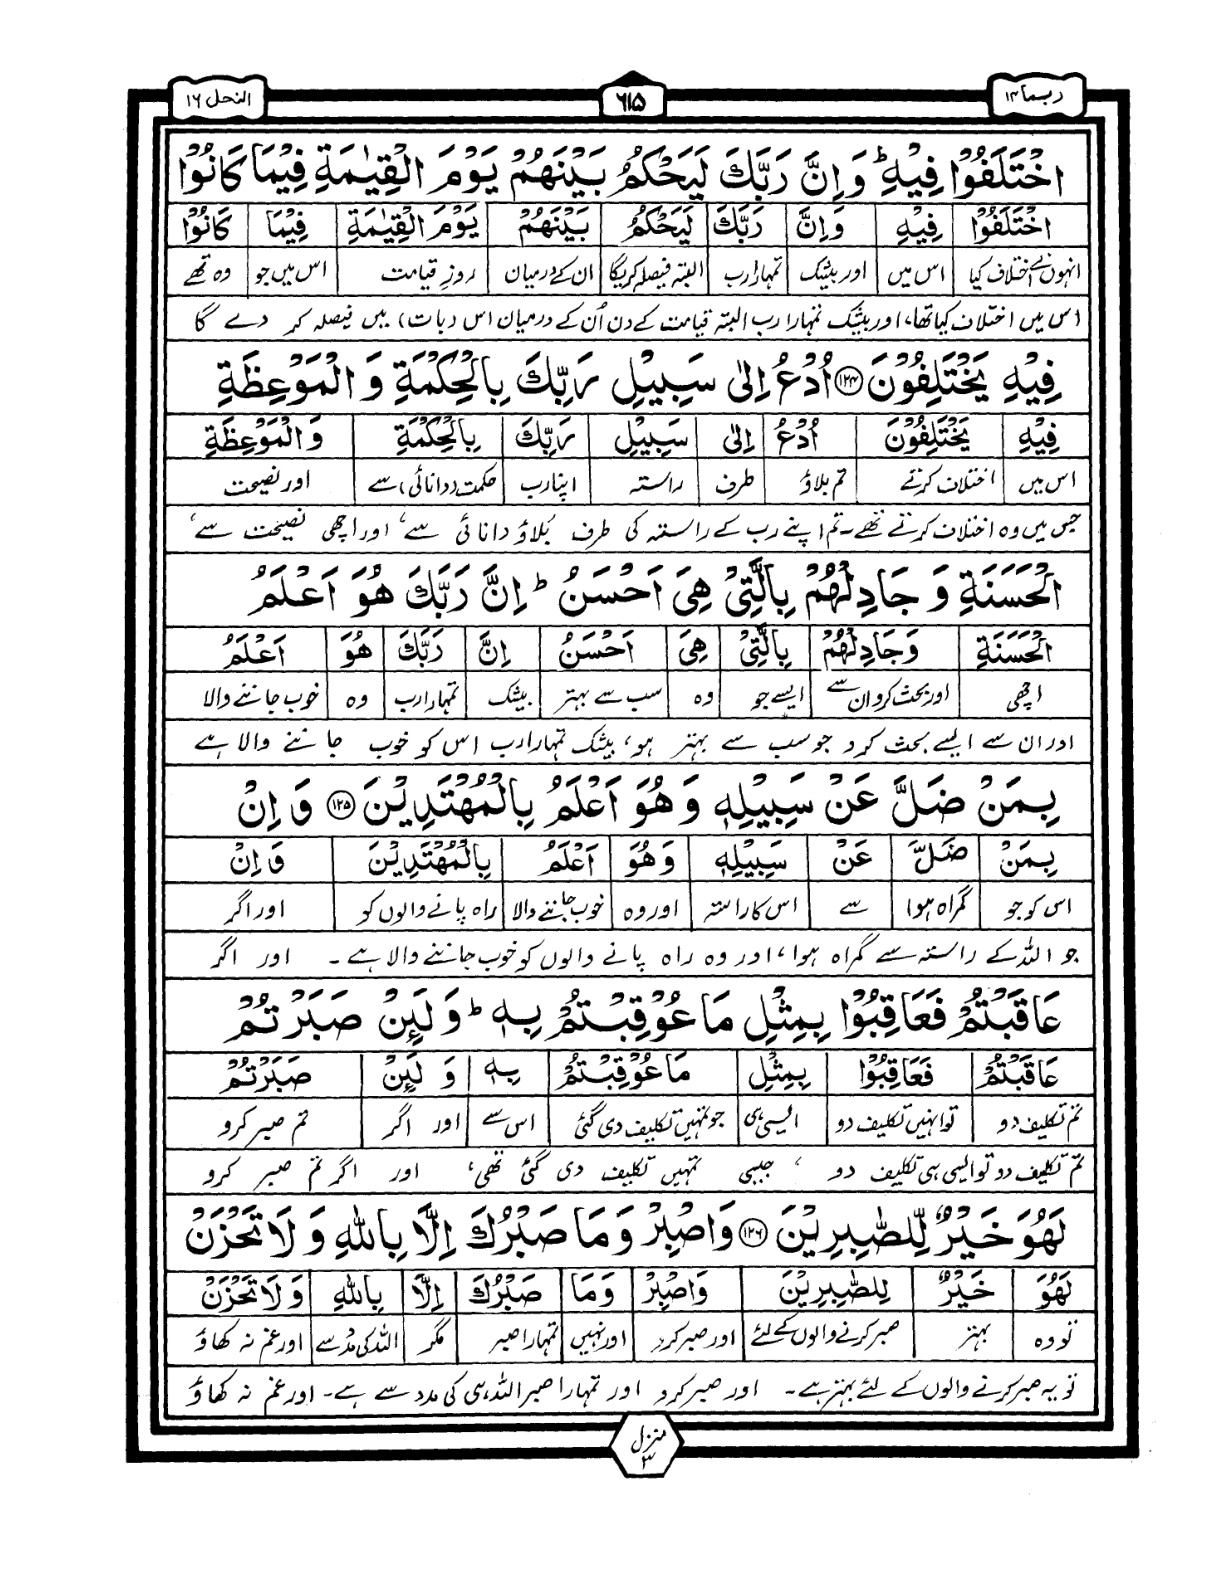 ربما ۱۴
٦١٥
النحل ١٦
اخْتَلَفُوْا فِيْهِ ؕ وَ اِنَّ رَبَّكَ لَيَحْكُمُ بَيْنَهُمْ يَوْمَ الْقِيٰمَةِ فِيْمَا كَانُوْا
اخْتَلَفُوْا فِيْهِ وَاِنَّ رَبَّكَ لَيَحْكُمُ بَيْنَهُمْ يَوْمَ الْقِيٰمَةِ فِيْمَا كَانُوْا
انہوں نے اختلاف کیا اس میں اور بیشک تمہارا رب البتہ فیصلہ کریگا ان کے درمیان روزِ قیامت اس میں جو وہ تھے
اس میں اختلاف کیا تھا، اور بیشک تمہارا رب البتہ قیامت کے دن اُن کے درمیان اس (بات) میں فیصلہ کر دے گا
فِيْهِ يَخْتَلِفُوْنَ ﴿۱۲۴﴾ اُدْعُ اِلٰى سَبِيْلِ رَبِّكَ بِالْحِكْمَةِ وَ الْمَوْعِظَةِ
فِيْهِ يَخْتَلِفُوْنَ اُدْعُ اِلٰى سَبِيْلِ رَبِّكَ بِالْحِكْمَةِ وَالْمَوْعِظَةِ
اس میں اختلاف کرتے تم بلاؤ طرف راستہ اپنا رب حکمت (دانائی) سے اور نصیحت
جس میں وہ اختلاف کرتے تھے۔ تم اپنے رب کے راستہ کی طرف بُلاؤ دانائی سے، اور اچھی نصیحت سے،
الْحَسَنَةِ وَ جَادِلْهُمْ بِالَّتِيْ هِيَ اَحْسَنُ ؕ اِنَّ رَبَّكَ هُوَ اَعْلَمُ
الْحَسَنَةِ وَجَادِلْهُمْ بِالَّتِيْ هِيَ اَحْسَنُ اِنَّ رَبَّكَ هُوَ اَعْلَمُ
اچھی اور بحث کرو ان سے ایسے جو وہ سب سے بہتر بیشک تمہارا رب وہ خوب جاننے والا
اور ان سے ایسے بحث کرو جو سب سے بہتر ہو، بیشک تمہارا رب اس کو خوب جاننے والا ہے
بِمَنْ ضَلَّ عَنْ سَبِيْلِهٖ وَ هُوَ اَعْلَمُ بِالْمُهْتَدِيْنَ ﴿۱۲۵﴾ وَ اِنْ
بِمَنْ ضَلَّ عَنْ سَبِيْلِهٖ وَهُوَ اَعْلَمُ بِالْمُهْتَدِيْنَ وَاِنْ
اس کو جو گمراہ ہوا سے اس کا راستہ اور وہ خوب جاننے والا راہ پانے والوں کو اور اگر
جو اللہ کے راستہ سے گمراہ ہوا، اور وہ راہ پانے والوں کو خوب جاننے والا ہے۔ اور اگر
عَاقَبْتُمْ فَعَاقِبُوْا بِمِثْلِ مَا عُوْقِبْتُمْ بِهٖ ؕ وَ لَئِنْ صَبَرْتُمْ
عَاقَبْتُمْ فَعَاقِبُوْا بِمِثْلِ مَا عُوْقِبْتُمْ بِهٖ وَ لَئِنْ صَبَرْتُمْ
تم تکلیف دو تو انہیں تکلیف دو ایسی ہی جو تمہیں تکلیف دی گئی اس سے اور اگر تم صبر کرو
تم تکلیف دو تو ایسی ہی تکلیف دو، جیسی تمہیں تکلیف دی گئی تھی، اور اگر تم صبر کرو
لَهُوَ خَيْرٌ لِّلصّٰبِرِيْنَ ﴿۱۲۶﴾ وَاصْبِرْ وَ مَا صَبْرُكَ اِلَّا بِاللّٰهِ وَ لَا تَحْزَنْ
لَهُوَ خَيْرٌ لِلصّٰبِرِيْنَ وَاصْبِرْ وَمَا صَبْرُكَ اِلَّا بِاللّٰهِ وَلَا تَحْزَنْ
تو وہ بہتر صبر کرنے والوں کے لئے اور صبر کرو اور نہیں تمہارا صبر مگر اللہ کی مدد سے اور غم نہ کھاؤ
تو یہ صبر کرنے والوں کے لئے بہتر ہے۔ اور صبر کرو اور تمہارا صبر اللہ ہی کی مدد سے ہے۔ اور غم نہ کھاؤ
منزل ۳